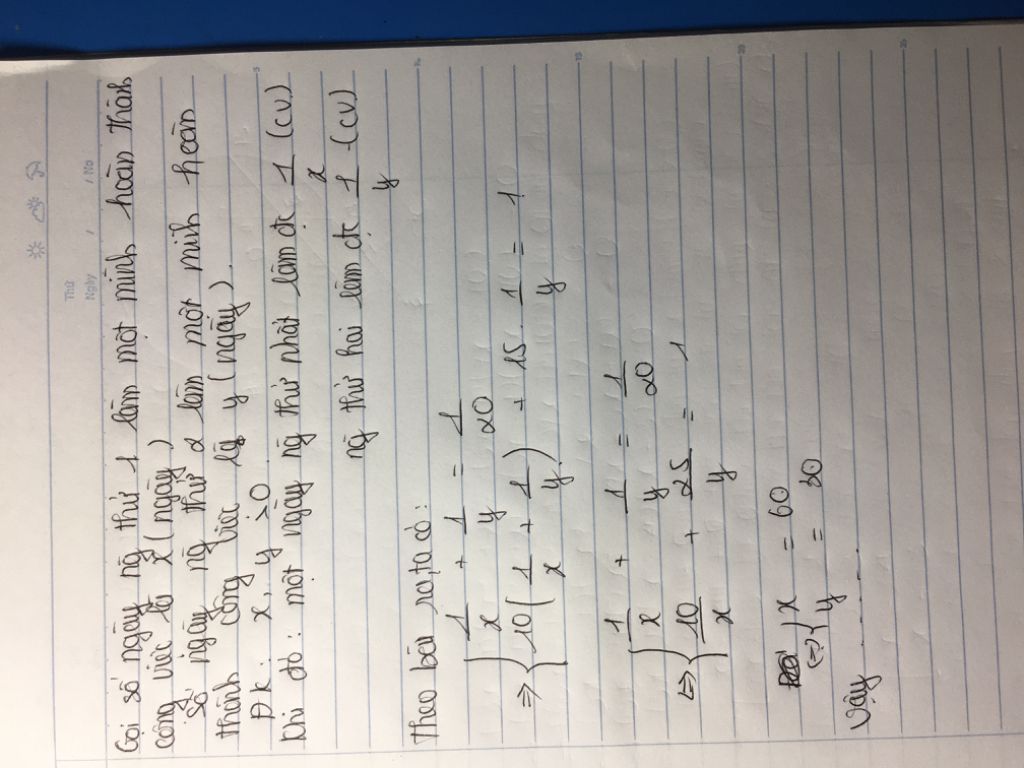 Thứ
Ngày , , No
Gọi số ngày ng thứ 1 làm một mình hoàn thành
công việc là x (ngày)
Số ngày ng thứ 2 làm một mình hoàn
thành công việc là y (ngày).
ĐK: x, y >0
Khi đó: một ngày ng thứ nhất làm đc 1/x (cv)
ng thứ hai làm đc 1/y (cv)
Theo bài ra, ta có:
⇒ { 1/x + 1/y = 1/20
10(1/x + 1/y) + 15. 1/y = 1
⇔ { 1/x + 1/y = 1/20
10/x + 25/y = 1
⇔ { x = 60
y = 30
Vậy .......
5
10
15
20
25